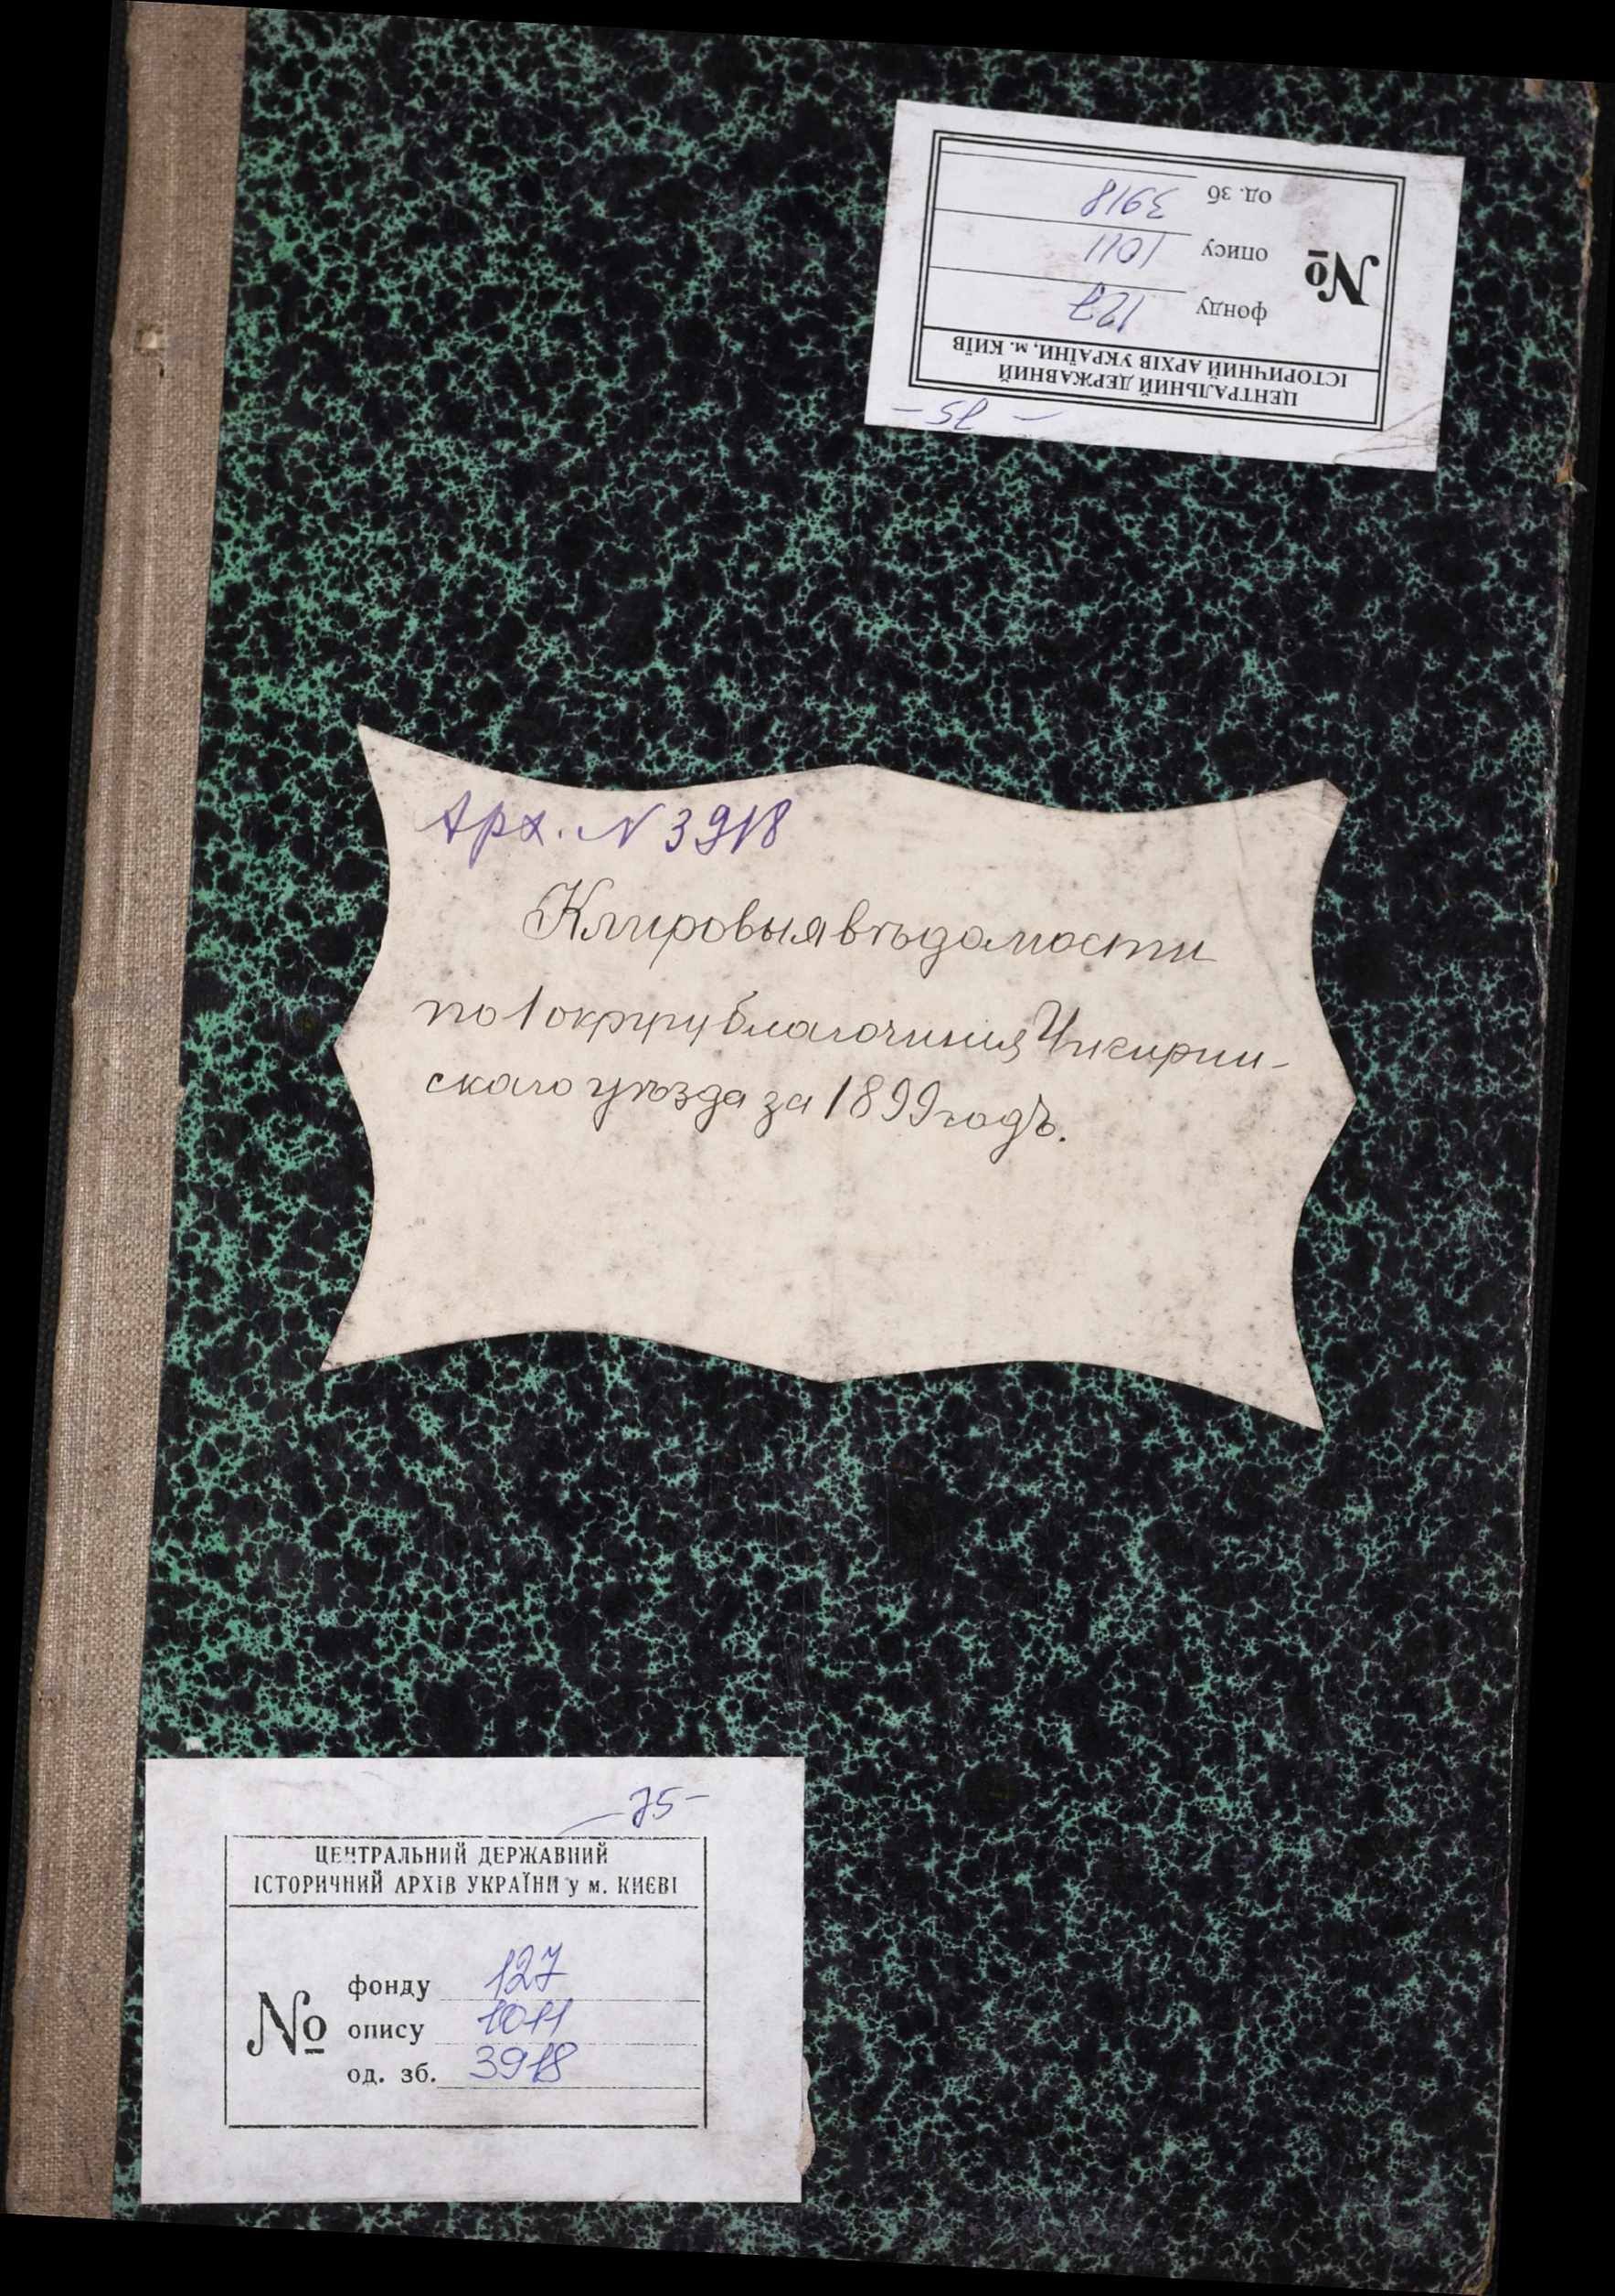 - 75 -
ЦЕНТРАЛЬНИЙ ДЕРЖАВНИЙ
ІСТОРИЧНИЙ АРХІВ УКРАЇНИ, м. КИЇВ
№
фонду 127
опису 1011
од. зб 3918
Арх. N 3918
Клировыя вѣдомости
по 1 округу благочиния Чигирин-
скаго уѣзда за 1899 годъ.
- 75 -
ЦЕНТРАЛЬНИЙ ДЕРЖАВНИЙ
ІСТОРИЧНИЙ АРХІВ УКРАЇНИ у м. КИЄВІ
№
фонду 127
опису 1011
од. зб. 3918